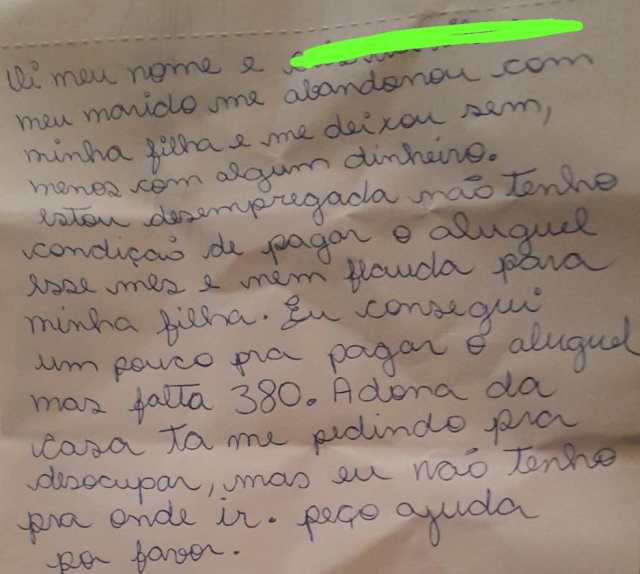 Oi meu nome e
meu marido me abandonou com
minha filha e me deixou sem,
menos com algum dinheiro.
estou desempregada não tenho
condição de pagar o aluguel
esse mes e nem frauda para
minha filha. Eu consegui
um pouco pra pagar o aluguel
mas falta 380. A dona da
casa ta me pedindo pra
desocupar, mas eu não tenho
pra onde ir. peço ajuda
por favor.